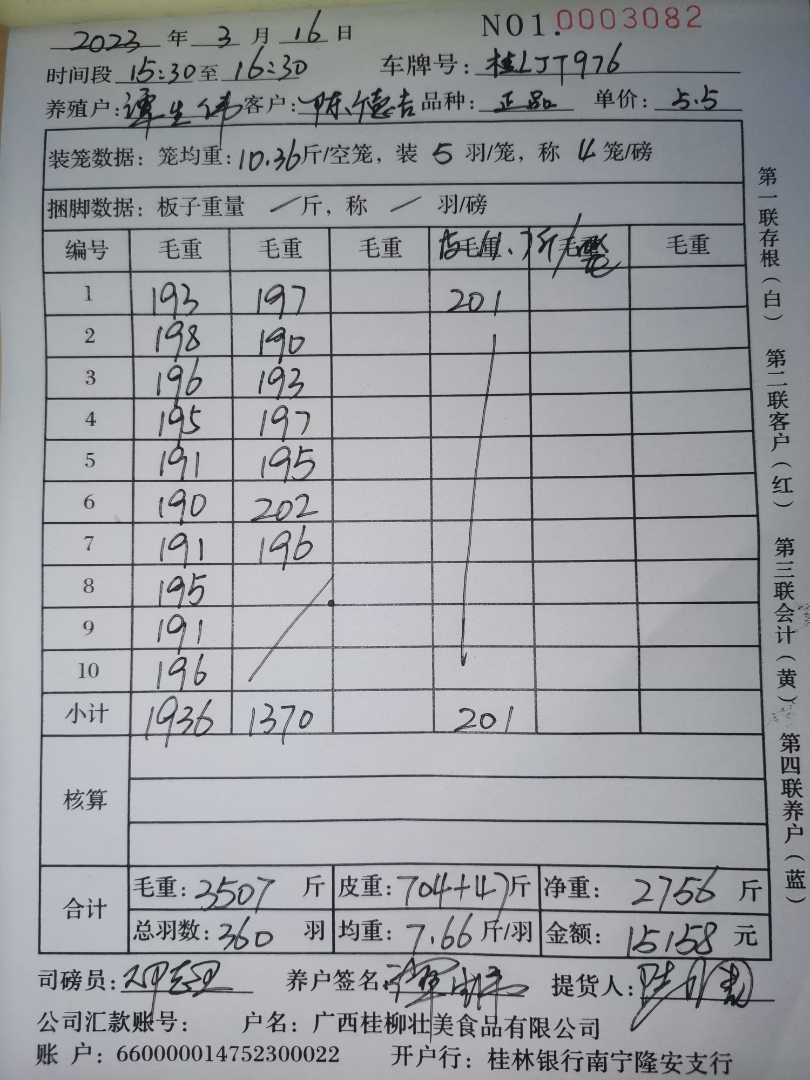 NO1.0003082
2023 年 3 月 16 日
时间段 15:30 至 16:30 车牌号: 桂LJT976
养殖户: 谭生伟 客户: 陈德吉 品种: 正品 单价: 5.5
装笼数据: 笼均重: 10.36 斤/空笼, 装 5 羽/笼, 称 4 笼/磅
捆脚数据: 板子重量 / 斤, 称 / 羽/磅
编号 毛重 毛重 毛重 毛重 毛重 毛重
1 193 197 201
2 198 190
3 196 193
4 195 197
5 191 195
6 190 202
7 191 196
8 195
9 191
10 196
小计 1936 1370 201
核算
合计
毛重: 3507 斤 皮重: 704+47 斤 净重: 2756 斤
总羽数: 360 羽 均重: 7.66 斤/羽 金额: 15158 元
司磅员: 养户签名: 提货人:
公司汇款账号: 户名: 广西桂柳壮美食品有限公司
账 户: 660000014752300022 开户行: 桂林银行南宁隆安支行
第一联存根(白) 第二联客户(红) 第三联会计(黄) 第四联养户(蓝)